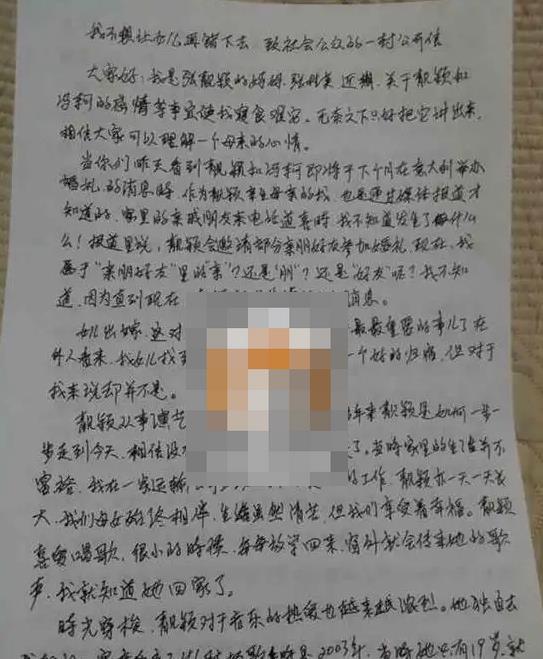 我不想让女儿再错下去 致社会公众的一封公开信
大家好：我是张靓颖的妈妈，张桂英 近期，关于靓颖和
冯轲的感情等事宜使我寝食难安。无奈之下只好把它讲出来，
相信大家可以理解一个母亲的心情。
当你们昨天看到靓颖和冯轲即将于下个月在意大利举办
婚礼的消息时，作为靓颖亲生母亲的我，也是通过媒体报道才
知道的，家里的亲戚朋友来电话道喜时，我不知道发生了什么
么！报道里说，靓颖会邀请部分亲朋好友参加婚礼，现在，我
属于“亲朋好友”里的“亲”？还是“朋”？还是“好友”呢？我不知
道，因为直到现在 消息。
女儿出嫁，这对 最最重要的事儿了在
外人看来，我女儿找 一个好的归宿，但对于
我来说却并不是。
靓颖从事演艺 年来靓颖是如何一步一
步走到今天，相信没 了，当时家里的生活并不
富裕，我在一家运输 的工作，靓颖亦一天一天长
大，我们母女的终相伴，生活虽然清苦，但我们享受着幸福。靓颖
喜爱唱歌，很小的时候，每每放学回来，窗外就会传来她的歌
声，我就知道她回家了。
时光穿梭，靓颖对于音乐的热爱也越来越浓烈。她独自去
2003年，当时她只有19岁，就